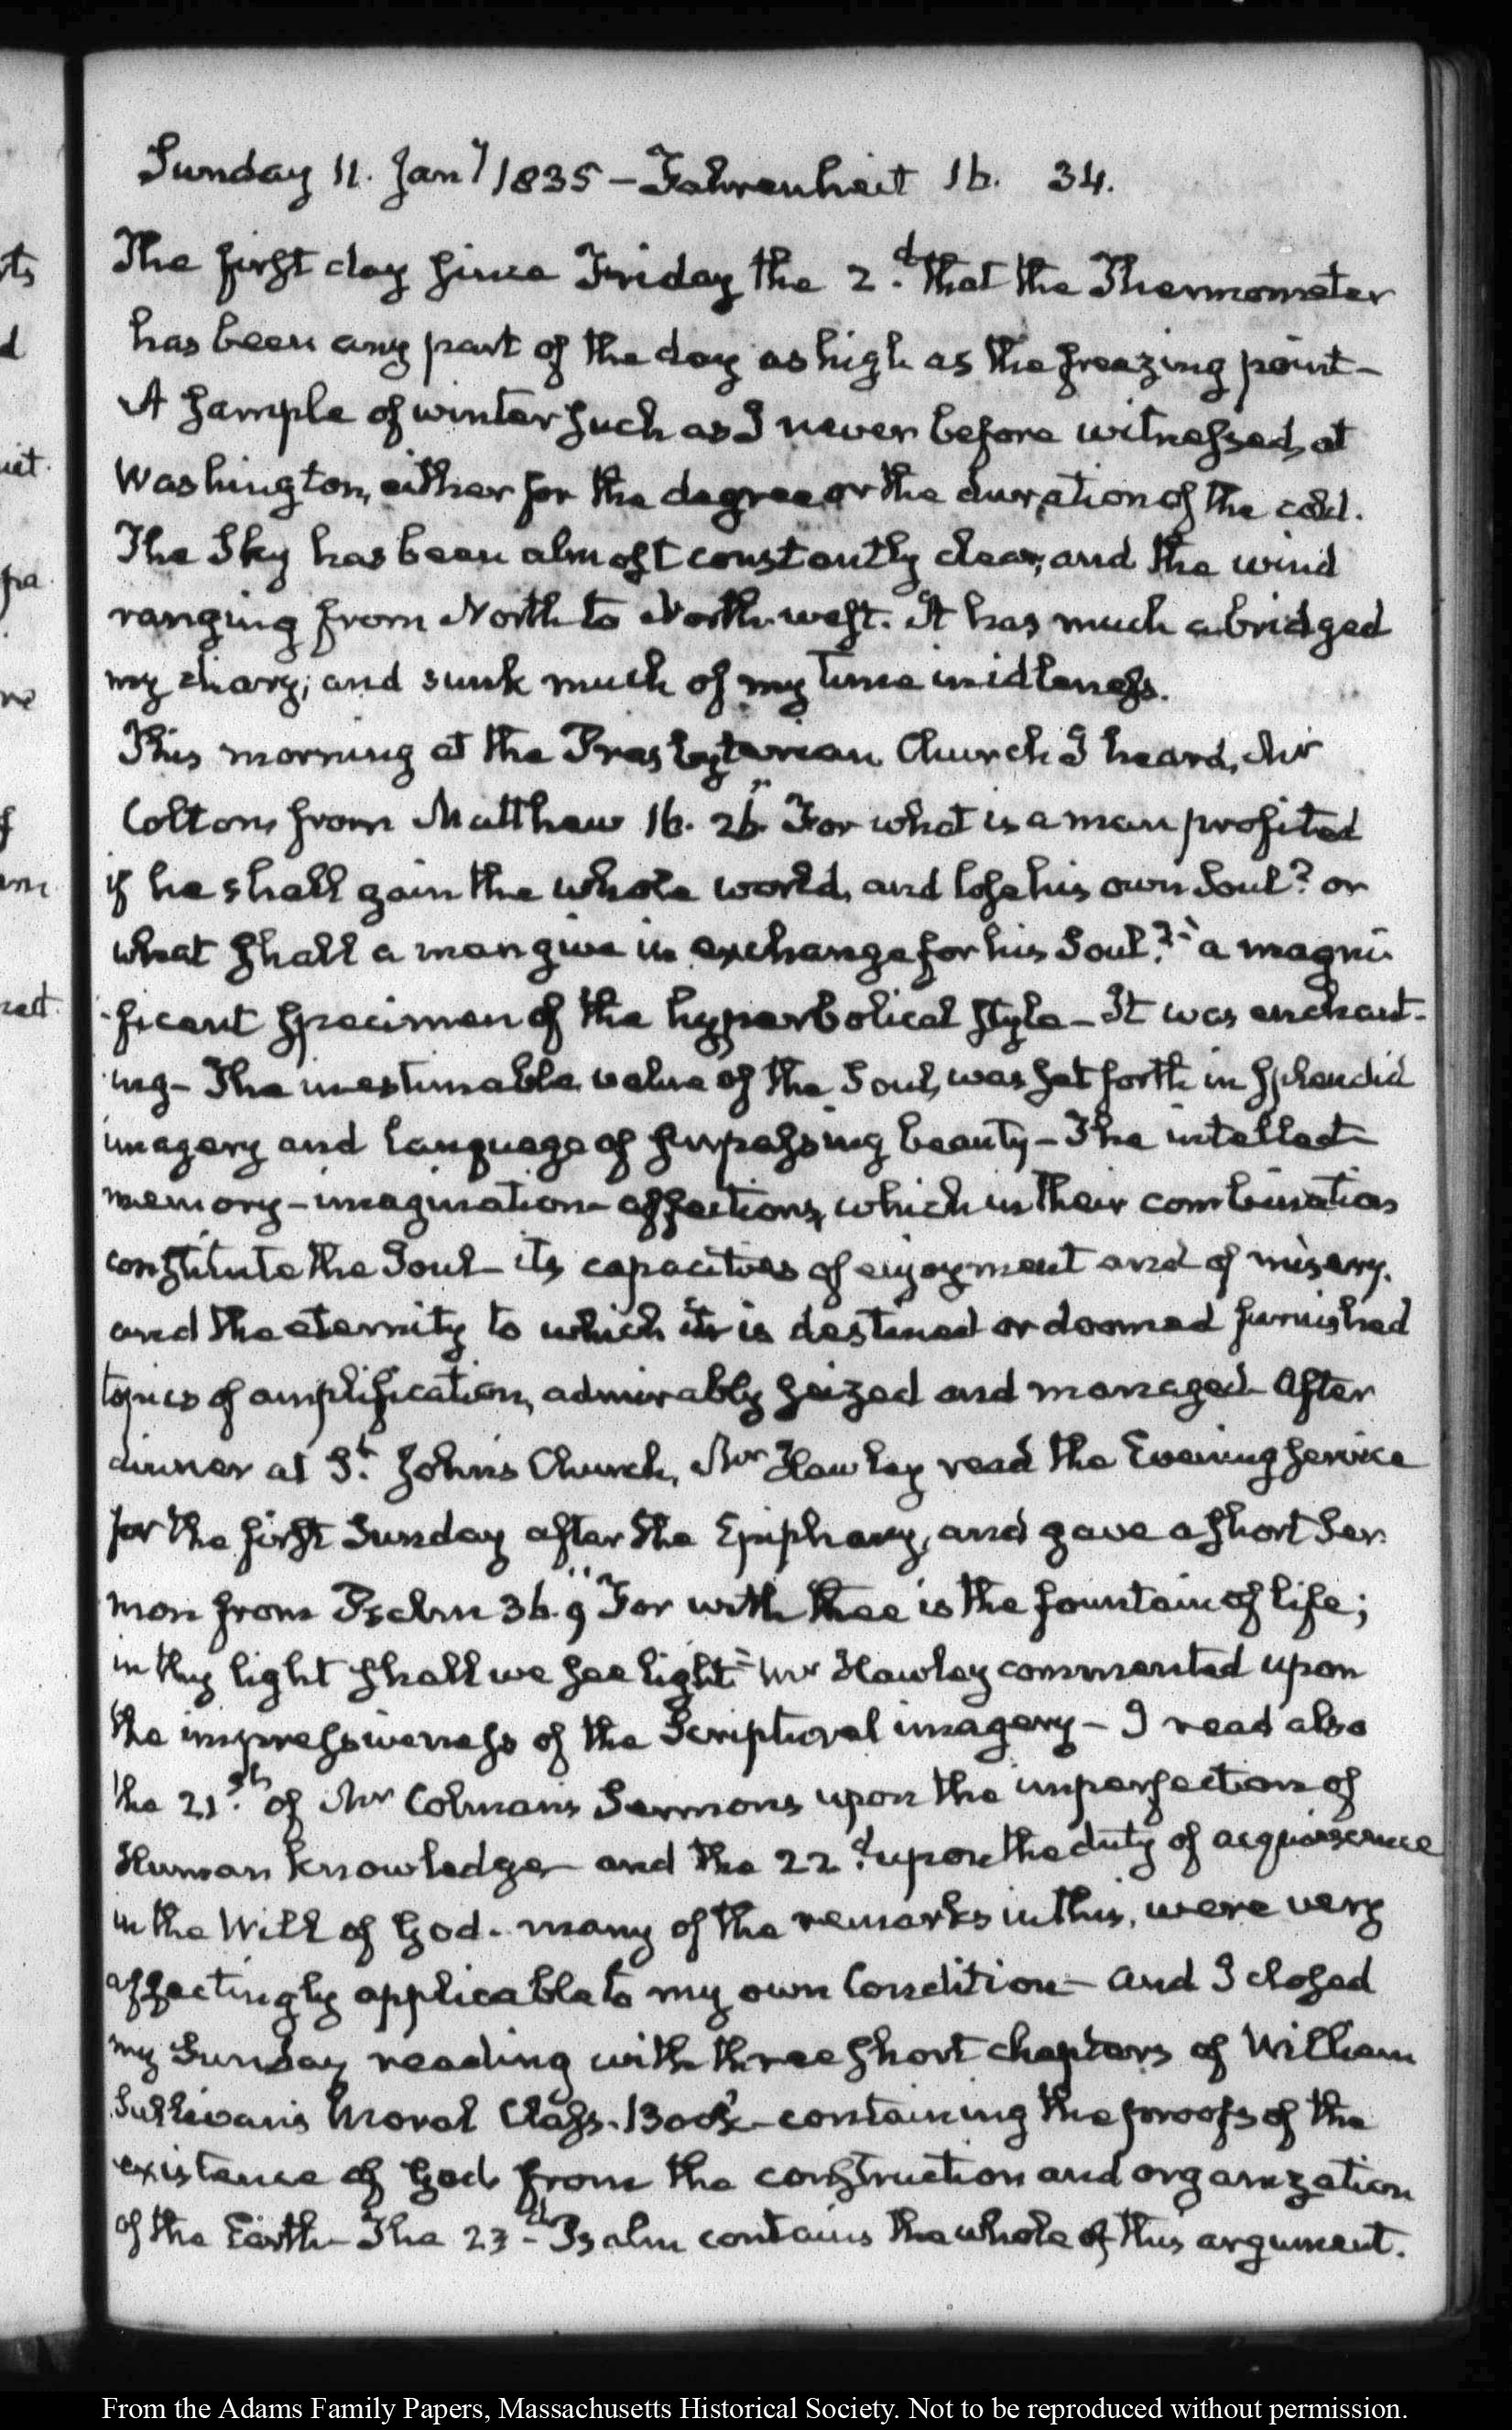 Sunday 11. Jany 1835 – Fahrenheit 16. 34.
The first day since Friday the 2.d that the Thermometer
has been any part of the day as high as the freezing point –
A sample of winter such as I never before witnessed, at
Washington, either for the degree or the duration of the cold.
The Sky has been almost constantly clear, and the wind
ranging from North to North-west. It has much abridged
my diary; and sunk much of my time in idleness.
This morning at the Presbyterian Church I heard, Mr
Colton, from Matthew 16. 26. "For what is a man profited
if he shall gain the whole world, and lose his own Soul? or
what shall a man give in exchange for his Soul?" a magni-
-ficent specimen of the hyperbolical style – It was enchant-
-ing – The inestimable value of the Soul, was set forth in splendid
imagery and language of surpassing beauty – The intellect
memory – imagination – affections, which in their combination
constitute the Soul – its capacities of enjoyment and of misery.
and the eternity to which it is destined or doomed furnished
topics of amplification, admirably seized and managed – After
dinner at St. John's Church, Mr Hawley read the Evening service
for the first Sunday after the Epiphany, and gave a short Ser-
mon from Psalm 36. 9 "For with thee is the fountain of life;
in thy light shall we see light" Mr Hawley commented upon
the impressiveness of the Scriptural imagery – I read also
the 21.st of Mr Colman's Sermons upon the imperfection of
Human knowledge – and the 22.d upon the duty of acquiescence
in the Will of God. many of the remarks in this, were very
affectingly applicable to my own Condition – and I closed
my Sunday reading with three short chapters of William
Sullivan's Moral Class-Book – containing the proofs of the
existence of God from the construction and organization
of the Earth – The 23d Psalm contains the whole of this argument.
ts
d
pa
f
From the Adams Family Papers, Massachusetts Historical Society. Not to be reproduced without permission.